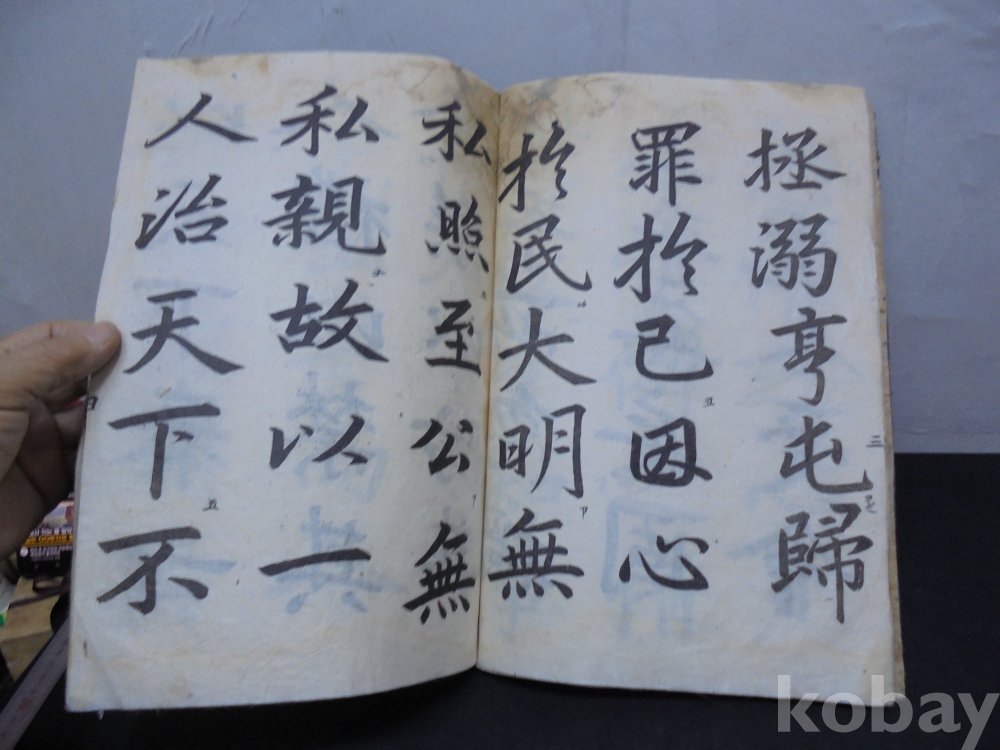 拯溺亨屯歸
罪於己因心
於民大明無
私照至公無
私親故以一
人治天下不
kobay